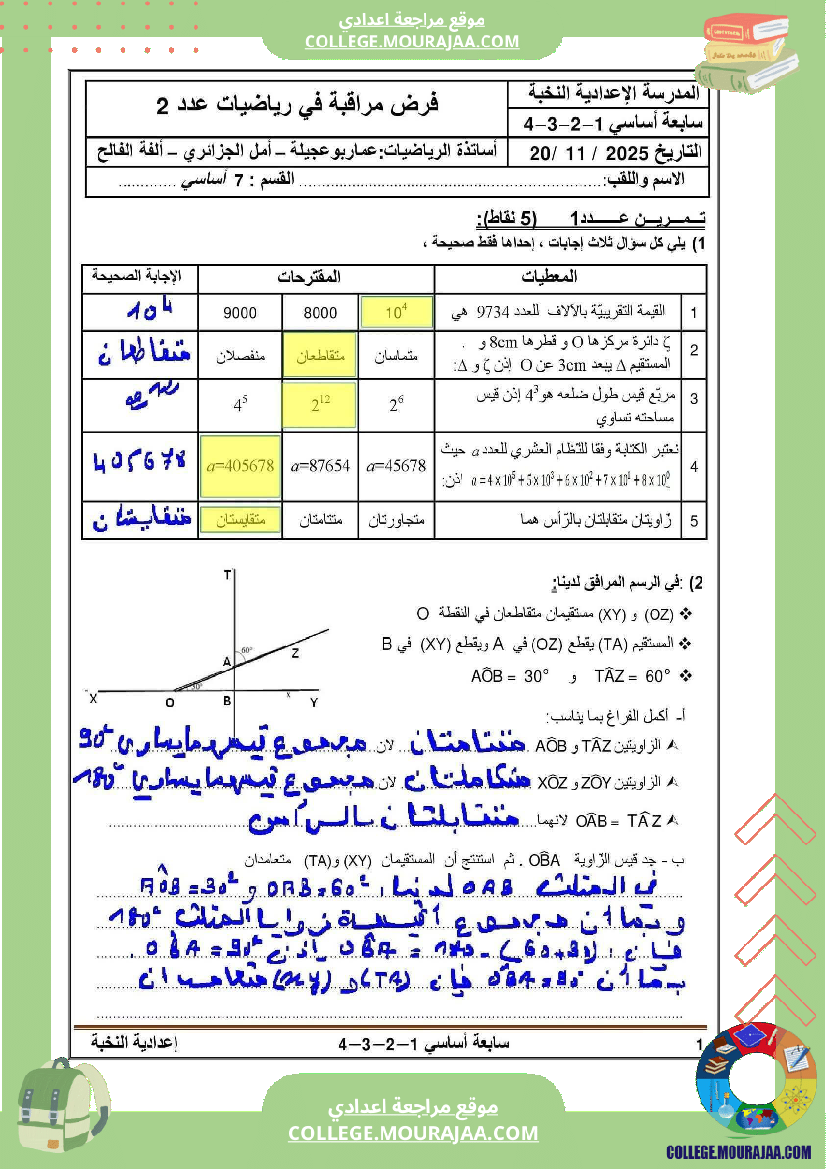 موقع مراجعة اعدادي
COLLEGE.MOURAJAA.COM
المدرسة الإعدادية النخبة
سابعة أساسي 1–2–3–4
فرض مراقبة في رياضيات عدد 2
التاريخ 2025 / 11 / 20
أساتذة الرياضيات:عماربوعجيلة – أمل الجزائري – ألفة الفالح
الاسم واللقب:............................ القسم : 7 أساسي .............
تــمــريــن عــــدد1 (5 نقاط):
1) يلي كل سؤال ثلاث إجابات ، إحداها فقط صحيحة ،
المعطيات المقترحات الإجابة الصحيحة
1 القيمة التقريبيّة بالآلاف للعدد 9734 هي 10⁴ 8000 9000 10⁴
2 ζ دائرة مركزها O و قطرها 8cm و .
المستقيم Δ يبعد 3cm عن O إذن ζ و Δ: متماسان متقاطعان منفصلان متقاطعان
3 مربّع قيس طول ضلعه هو4³ إذن قيس
مساحته تساوي 2⁶ 2¹² 4⁵
4 نعتبر الكتابة وفقا للنّظام العشري للعدد a حيث
a = 4 x 10⁵ + 5 x 10³ + 6 x 10² + 7 x 10¹ + 8 x 10⁰ اذن: a=45678 a=87654 a=405678 405678
5 زاويتان متقابلتان بالرّأس هما متجاورتان متتامتان متقايستان متقايستان
2) :في الرسم المرافق لدينا:
❖ (OZ) و (XY) مستقيمان متقاطعان في النقطة O
❖ المستقيم (TA) يقطع (OZ) في A ويقطع (XY) في B
❖ TÂZ = 60° و AÔB = 30°
T
A 60° Z
X O 30° B x Y
أ- أكمل الفراغ بما يناسب:
⮚ الزاويتين TÂZ و AÔB متتامتان لان مجموع قيسهما يساوي 90°
⮚ الزاويتين ZÔY و XÔZ متكاملتان لان مجموع قيسهما يساوي 180°
⮚ OÂB = TÂZ لانهما متقابلتان بالرأس
ب - جد قيس الزّاوية OB̂A . ثم استنتج أن المستقيمان (XY) و(TA) متعامدان
في المثلث OAB لدينا: OÂB=60° و AÔB=30°
وبما أن مجموع أقيسة زوايا المثلث 180°
فإن : OB̂A = 180-(60+30) إذن OB̂A=90°.
بما أن OB̂A=90° فإن (TA) و (XY) متعامدان
1 سابعة أساسي 1–2–3–4 إعدادية النخبة
موقع مراجعة اعدادي
COLLEGE.MOURAJAA.COM
COLLEGE.MOURAJAA.COM